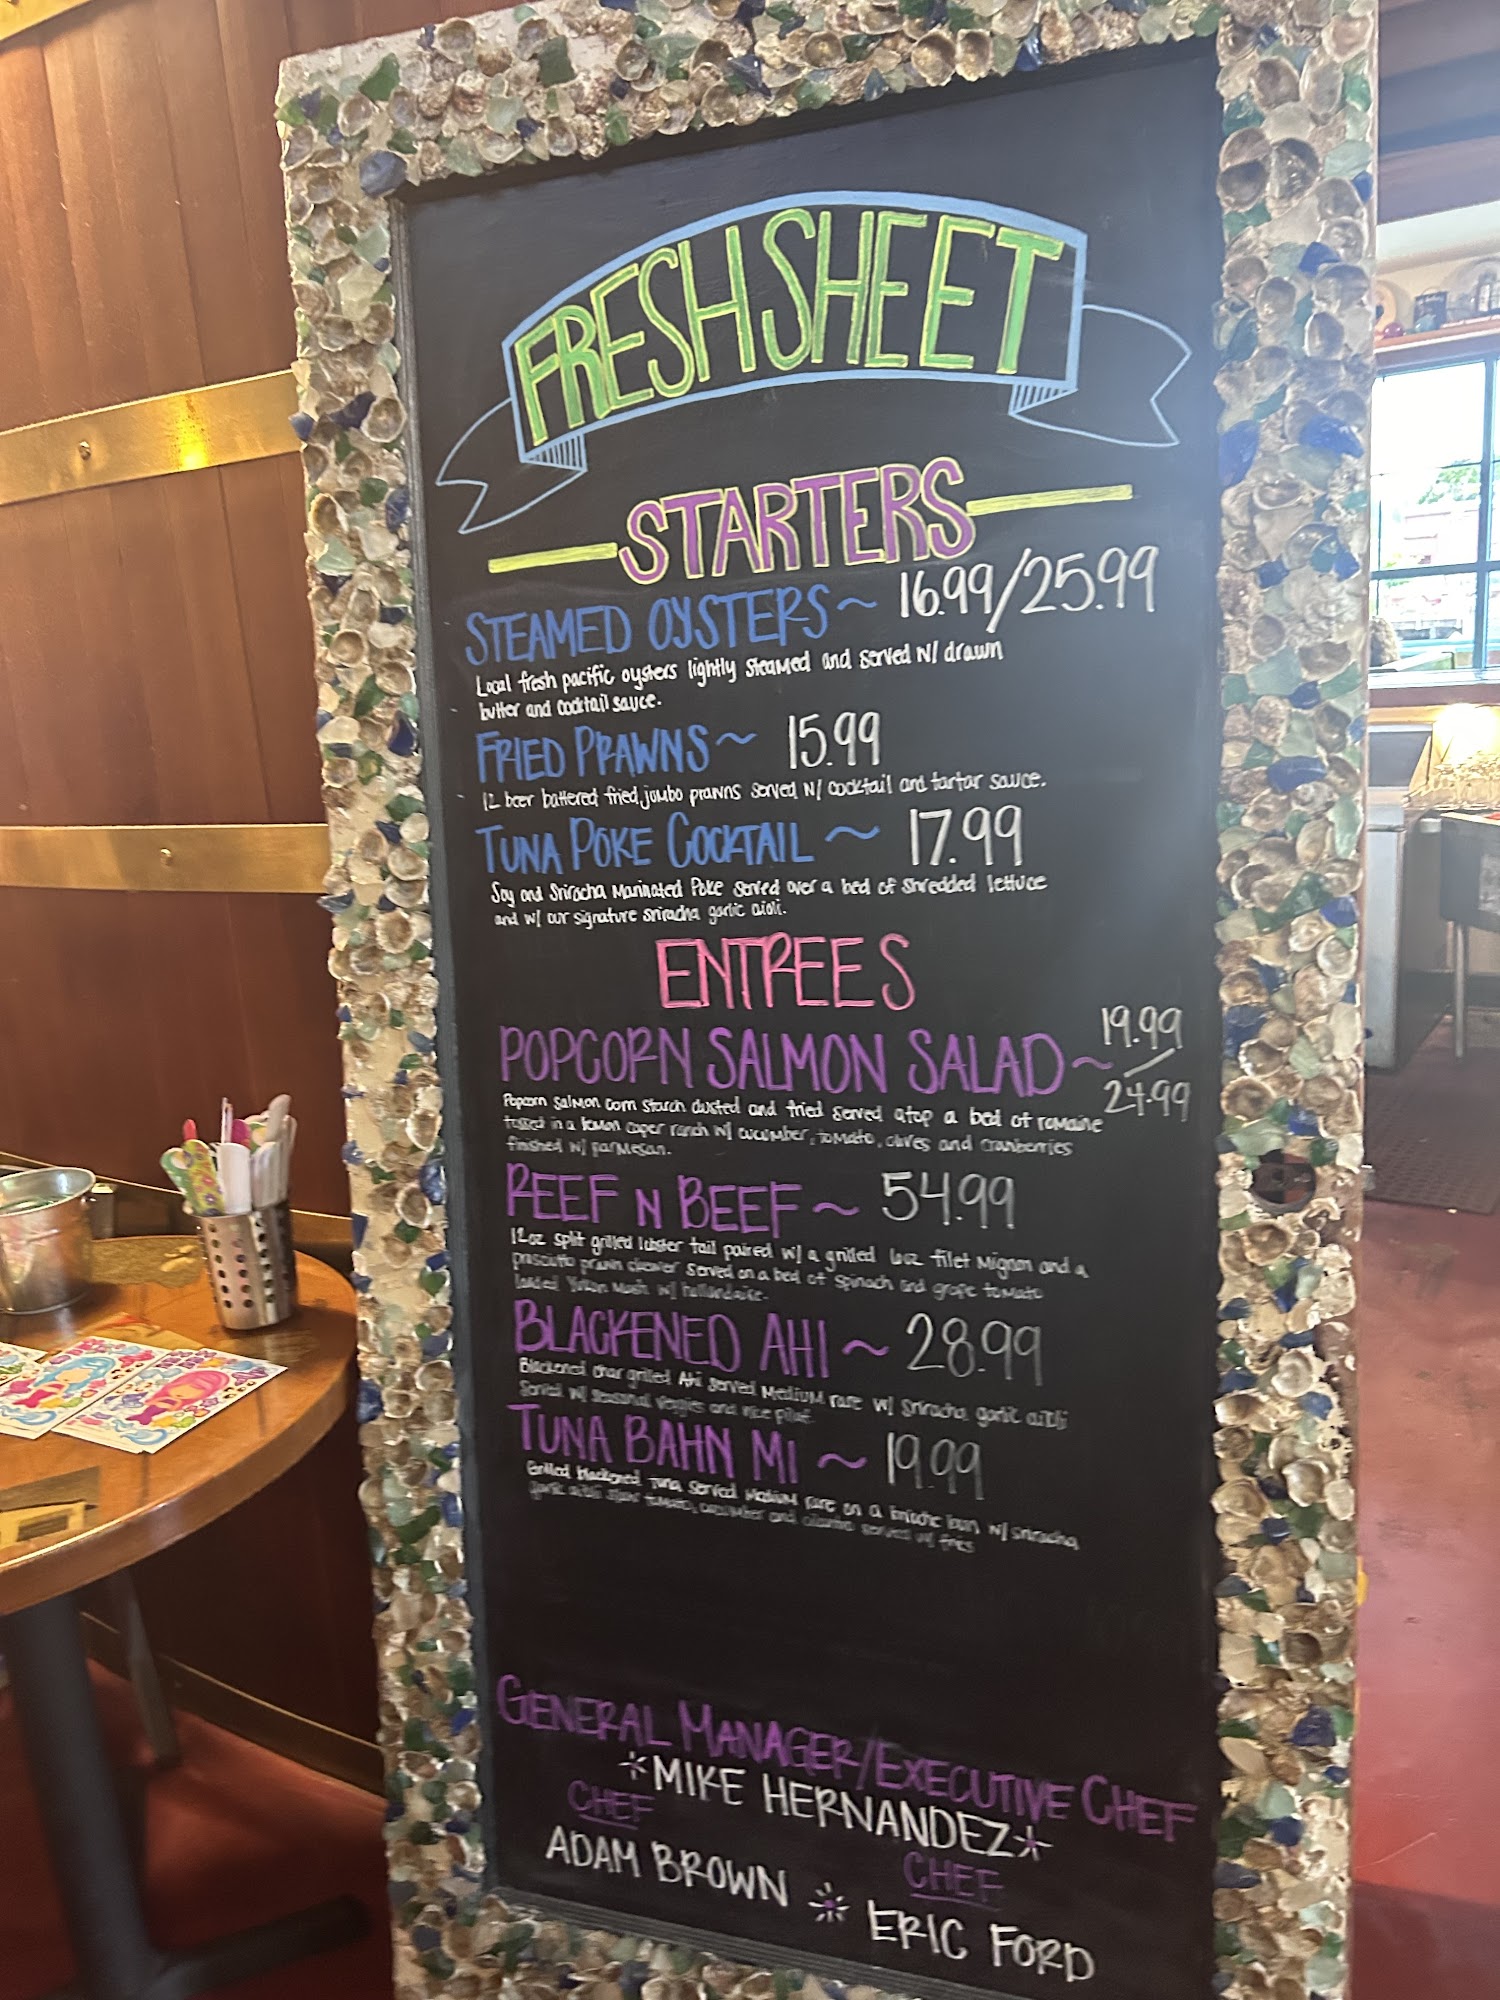 FRESH SHEET
STARTERS
STEAMED OYSTERS ~ 16.99/25.99
Local fresh pacific oysters lightly steamed and served w/ drawn
butter and cocktail sauce.
FRIED PRAWNS ~ 15.99
12 beer battered fried jumbo prawns served w/ cocktail and tartar sauce.
TUNA POKE COCKTAIL ~ 17.99
Soy and Sriracha Marinated Poke served over a bed of shredded lettuce
and w/ our signature sriracha garlic aioli.
ENTREES
POPCORN SALMON SALAD ~ 19.99/24.99
Popcorn salmon corn starch dusted and fried served atop a bed of romaine
tossed in a lemon caper ranch w/ cucumber, tomato, olives and cranberries
finished w/ parmesan.
REEF N BEEF ~ 54.99
12oz split grilled lobster tail paired w/ a grilled 6oz filet mignon and a
prosciutto prawn skewer served on a bed of spinach and grape tomato
loaded Yukon Mash w/ hollandaise.
BLACKENED AHI ~ 28.99
Blackened char grilled Ahi served medium rare w/ sriracha garlic aioli
served w/ seasonal veggies and rice pilaf.
TUNA BAHN MI ~ 19.99
Grilled blackened tuna served medium rare on a brioche bun w/ sriracha
garlic aioli slaw tomato, cucumber and cilantro served w/ fries
GENERAL MANAGER/EXECUTIVE CHEF
*MIKE HERNANDEZ*
CHEF
ADAM BROWN
CHEF
ERIC FORD